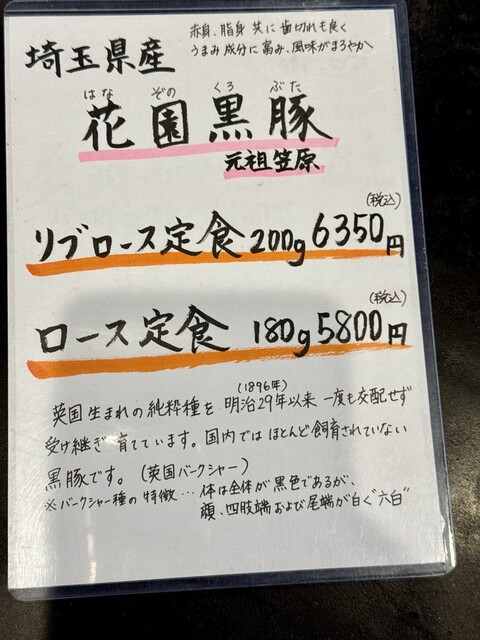 赤身、脂身 共に 歯切れも良く
うまみ成分に富み、風味がまろやか
埼玉県産
はな ぞの くろ ぶた
花園黒豚
元祖笠原
(税込)
リブロース定食 200g 6350円
(税込)
ロース定食 180g 5800円
(1896年)
英国生まれの純粋種を 明治29年以来 一度も交配せず
受け継ぎ育てています。国内では ほとんど飼育されていない
黒豚です。(英国バークシャー)
※バークシャー種の特徴… 体は全体が黒色であるが、
顔、四肢端および尾端が白く"六白"